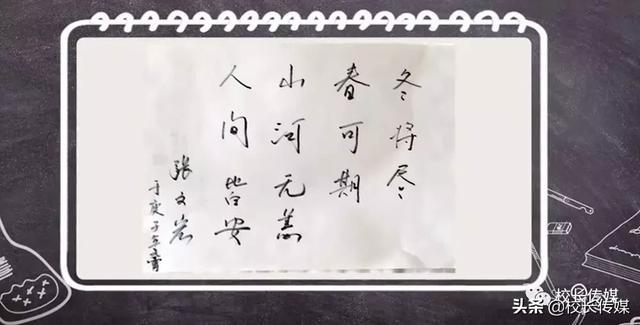 冬将尽
春可期
山河无恙
人间皆安
张文宏
于庚子立春
校长传媒
头条 @校长传媒